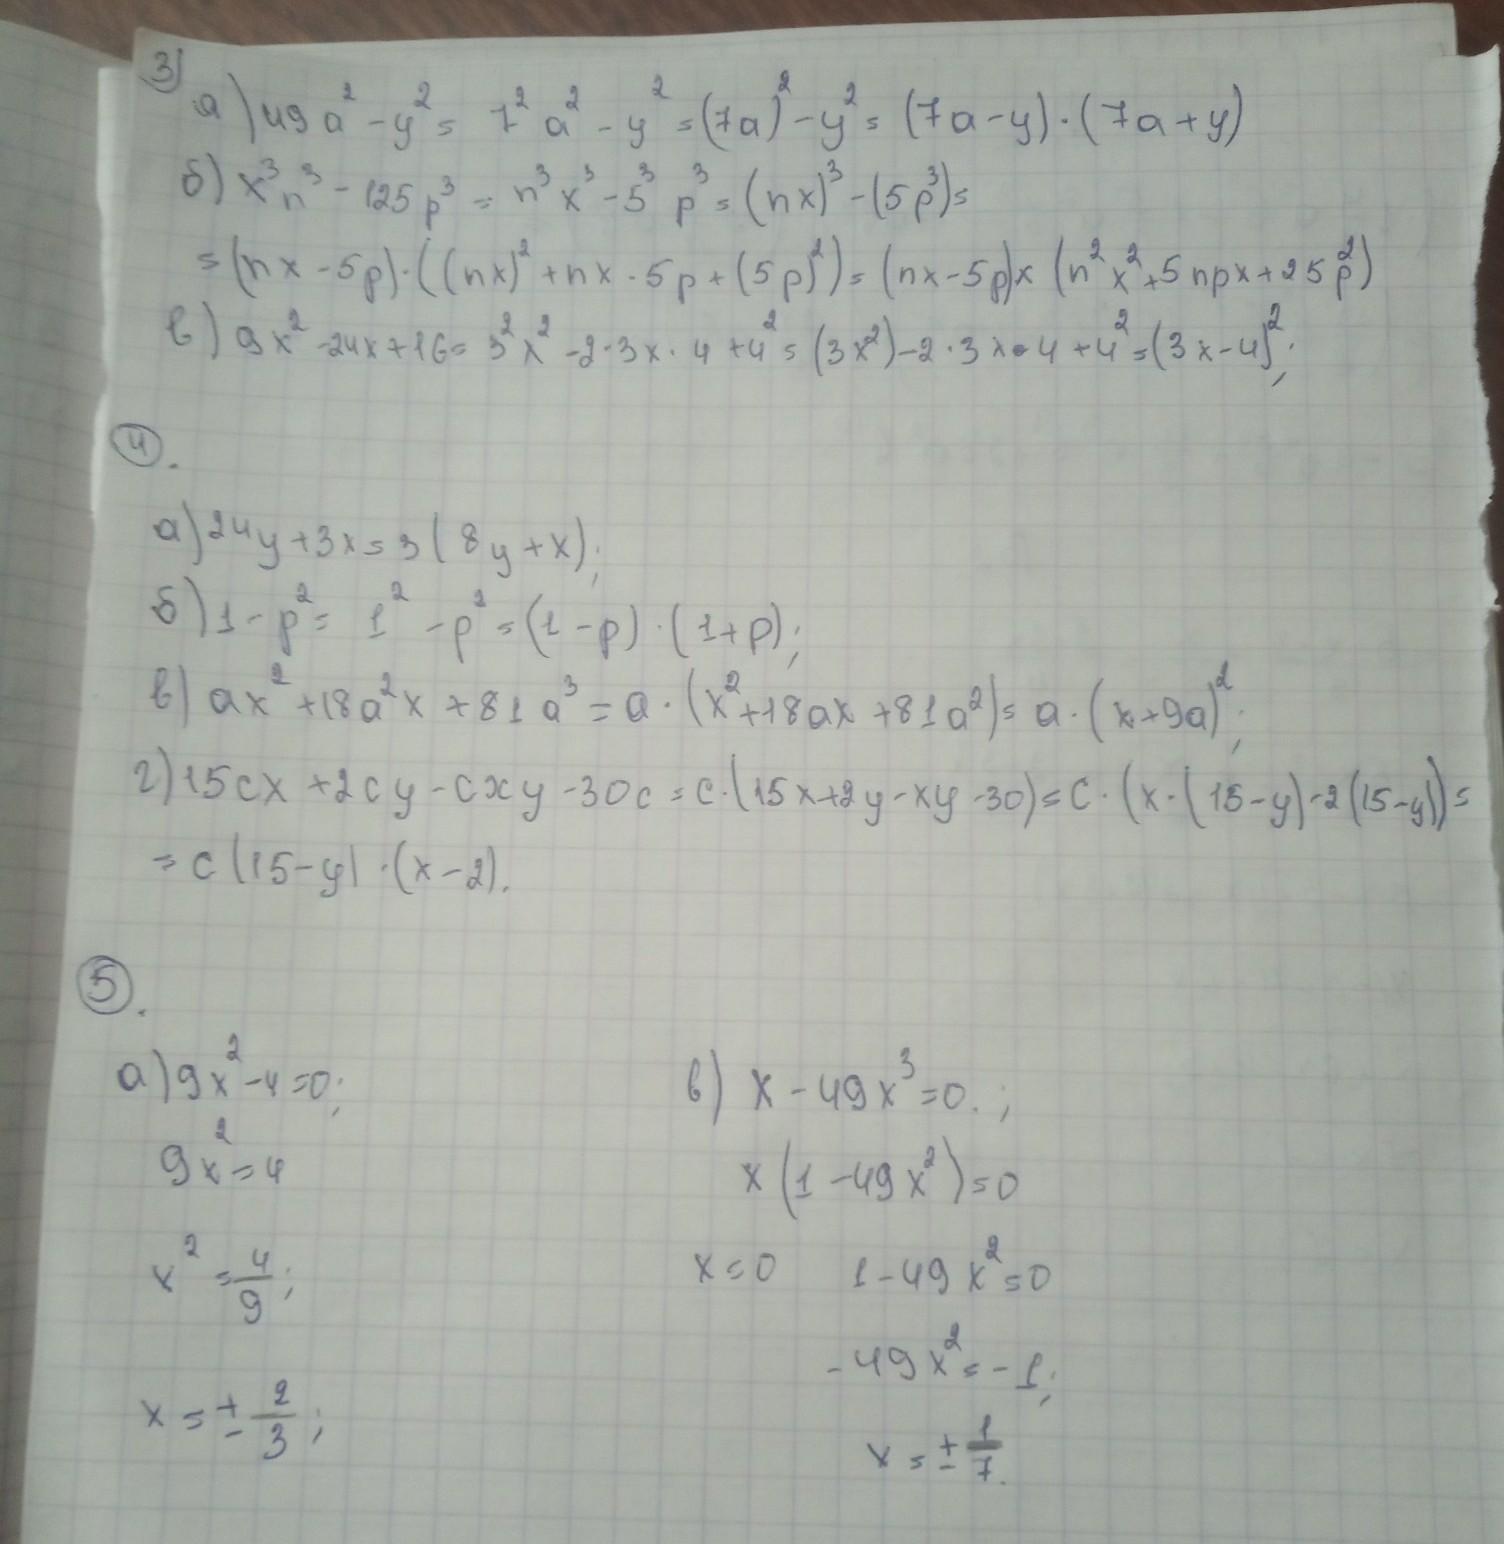 3)
а) 49a² - y² = 7² a² - y² = (7a)² - y² = (7a - y) · (7a + y)
б) x³n³ - 125p³ = n³ x³ - 5³ p³ = (nx)³ - (5p³) =
= (nx - 5p) · ((nx)² + nx · 5p + (5p)²) = (nx - 5p) x (n² x² + 5npx + 25p²)
в) 9x² - 24x + 16 = 3² x² - 2 · 3x · 4 + 4² = (3x²) - 2 · 3x · 4 + 4² = (3x - 4)²;
4.
а) 24y + 3x = 3(8y + x);
б) 1 - p² = 1² - p² = (1 - p) · (1 + p);
в) ax² + 18a²x + 81a³ = a · (x² + 18ax + 81a²) = a · (x + 9a)²;
г) 15cx + 2cy - cxy - 30c = c · (15x + 2y - xy - 30) = c · (x · (15 - y) - 2(15 - y)) =
= c(15 - y) · (x - 2).
5.
а) 9x² - 4 = 0;
9x² = 4
x² = 4/9;
x = ± 2/3;
в) x - 49x³ = 0. ;
x(1 - 49x²) = 0
x = 0 1 - 49x² = 0
- 49x² = - 1;
x = ± 1/7.